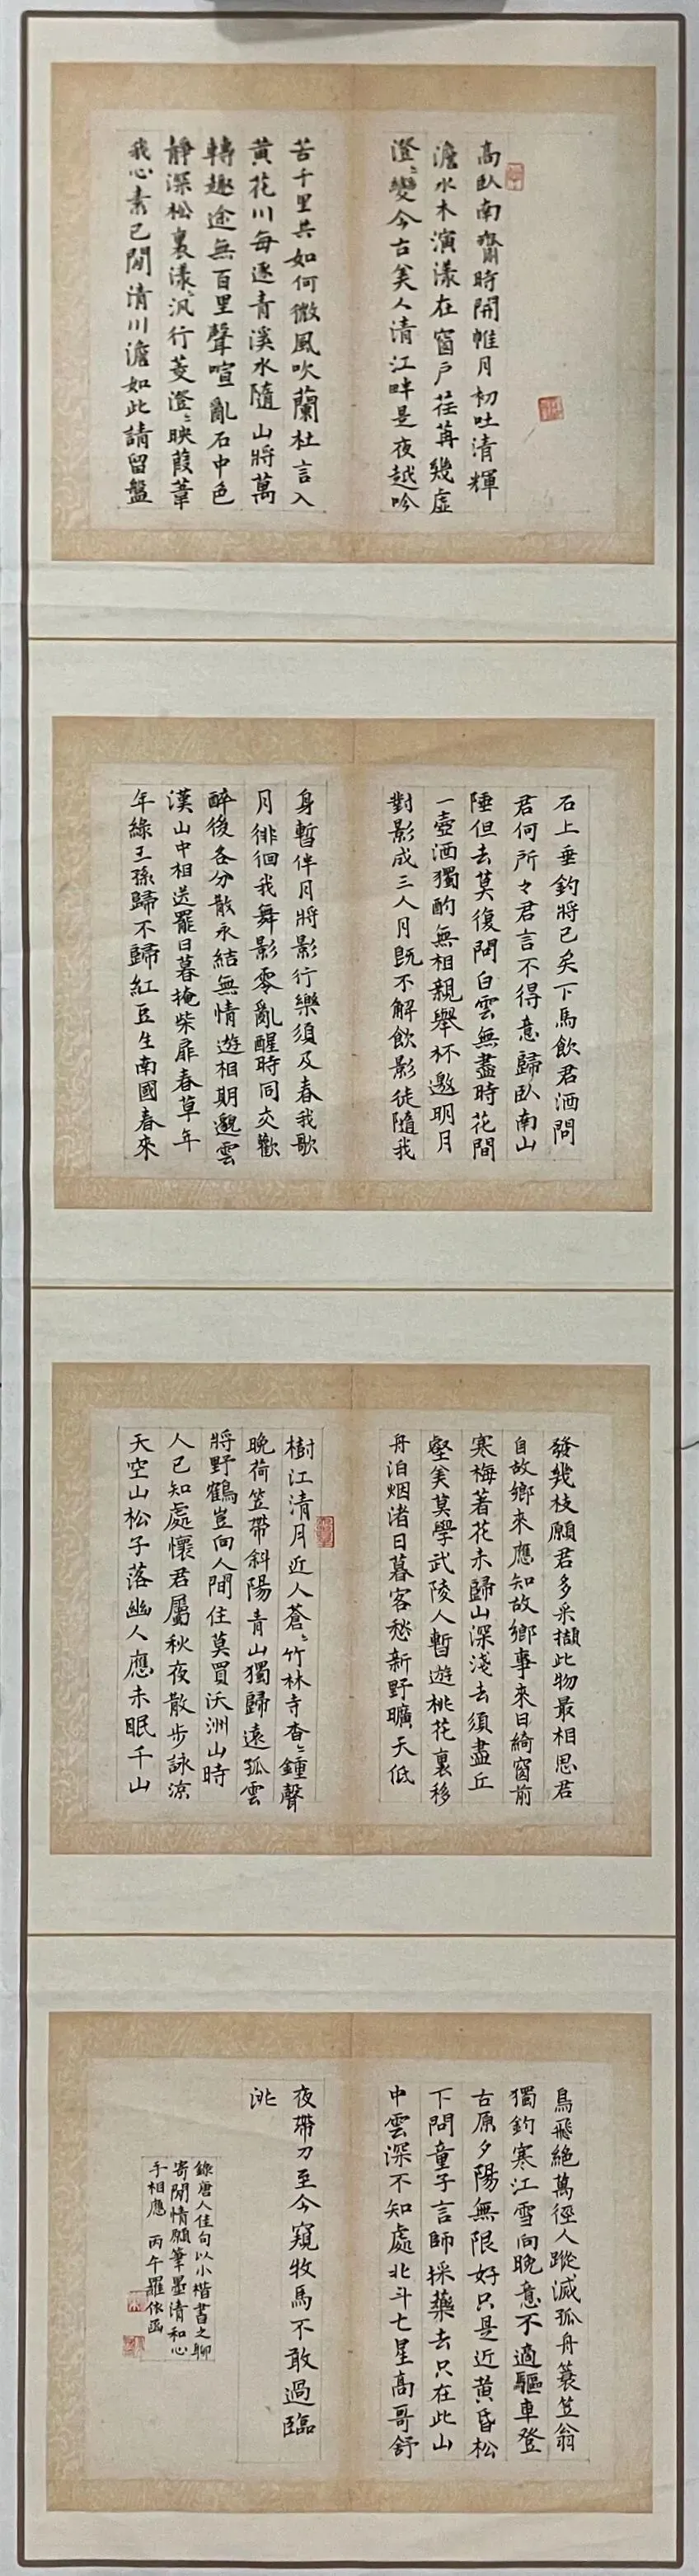 高臥南齋時開帷月初吐清輝
澹水木演漾在窗戶荏苒幾虛
澄〻變今古美人清江畔是夜越吟
苦千里共如何微風吹蘭杜言入
黃花川每逐青溪水隨山將萬
轉趣途無百里聲喧亂石中色
靜深松裏漾〻汎行菱澄〻映葭葦
我心素已閒清川澹如此請留盤
石上垂釣將已矣下馬飲君酒問
君何所之君言不得意歸臥南山
陲但去莫復問白雲無盡時花間
一壺酒獨酌無相親舉杯邀明月
對影成三人月既不解飲影徒隨我
身暫伴月將影行樂須及春我歌
月徘徊我舞影零亂醒時同交歡
醉後各分散永結無情遊相期邈雲
漢山中相送罷日暮掩柴扉春草年
年綠王孫歸不歸紅豆生南國春來
發幾枝願君多采擷此物最相思君
自故鄉來應知故鄉事來日綺窗前
寒梅著花未歸山深淺去須盡丘
壑美莫學武陵人暫遊桃花裏移
舟泊烟渚日暮客愁新野曠天低
樹江清月近人蒼〻竹林寺杳〻鍾聲
晚荷笠帶斜陽青山獨歸遠孤雲
將野鶴豈向人間住莫買沃洲山時
人已知處懷君屬秋夜散步詠涼
天空山松子落幽人應未眠千山
鳥飛絕萬徑人蹤滅孤舟蓑笠翁
獨釣寒江雪向晚意不適驅車登
古原夕陽無限好只是近黃昏松
下問童子言師採藥去只在此山
中雲深不知處北斗七星高哥舒
夜帶刀至今窺牧馬不敢過臨
洮
錄唐人佳句以小楷書之聊
寄閒情願筆墨清和心
手相應 丙午羅依函